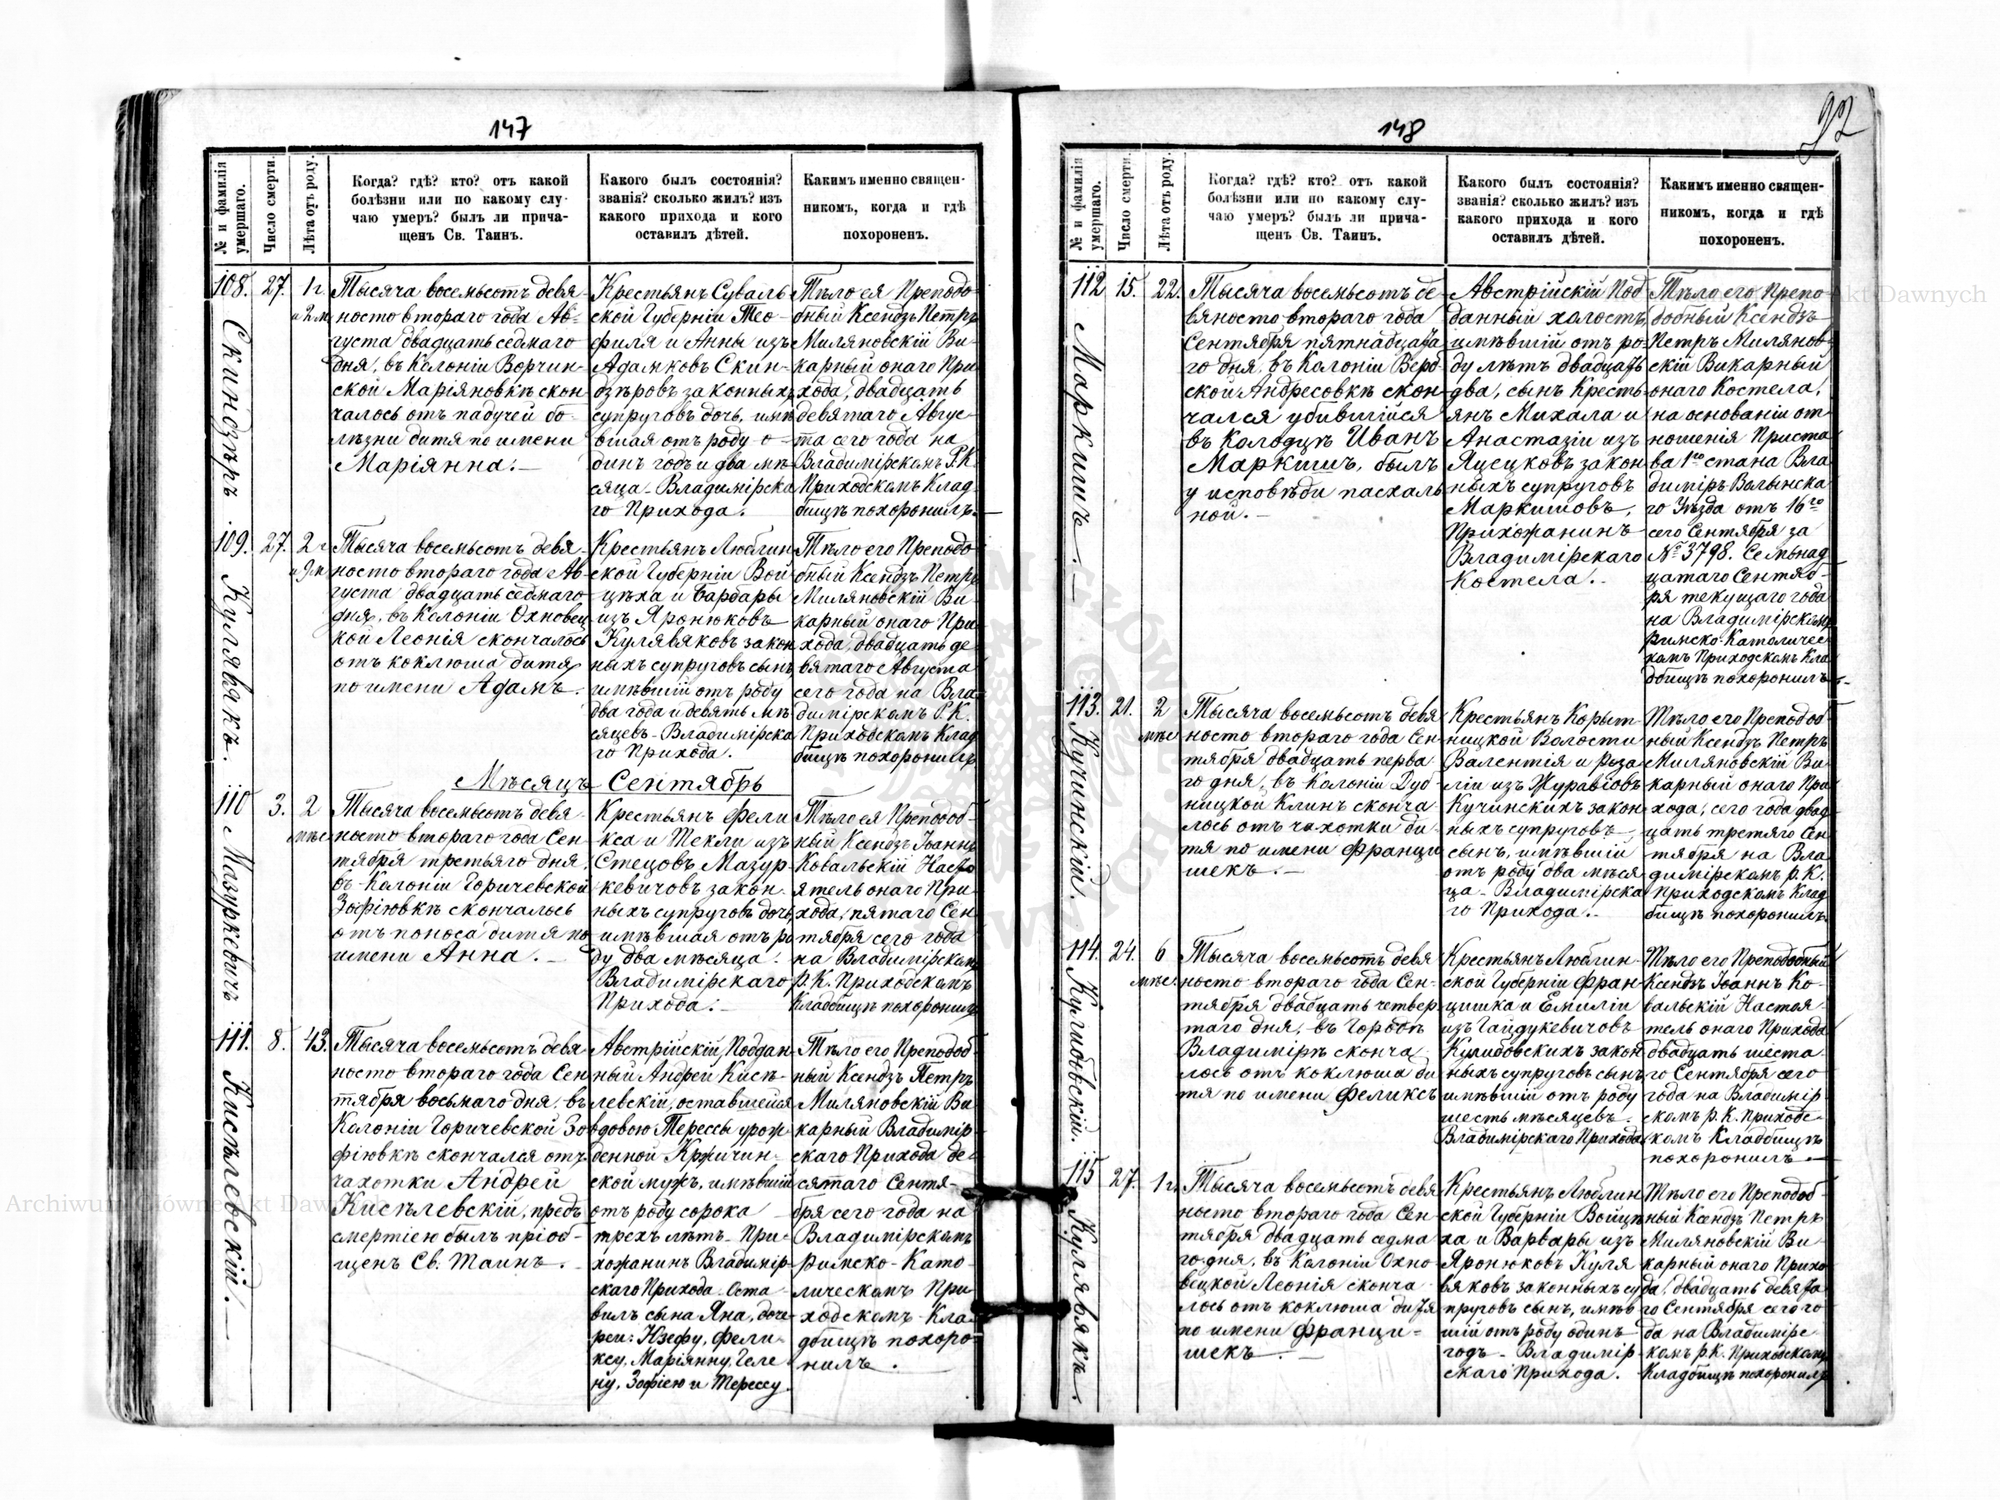 147
№ и фамилія умершаго.
Число смерти.
Лѣта отъ роду.
Когда? гдѣ? кто? отъ какой
болѣзни или по какому слу-
чаю умеръ? былъ ли прича-
щенъ Св. Таинъ.
Какого былъ состоянія?
званія? сколько жилъ? изъ
какого прихода и кого
оставилъ дѣтей.
Какимъ именно священ-
никомъ, когда и гдѣ
похороненъ.
108. Скиндзѣръ
27.
1 г. и 2 м.
Тысяча восемьсотъ девя-
носто втораго года Ав-
густа двадцать седмаго
дня, въ Колоніи Ворчин-
ской Маріяновкѣ скон
чалось отъ падучей бо-
лѣзни дитя по имени
Маріянна.—
Крестьянъ Суваль
ской Губерніи Тео-
филя и Анны изъ
Адамковъ Скин-
дзѣровъ законныхъ
супруговъ дочь, имѣ
вшая отъ роду о-
динъ годъ и два мѣ
сяца - Владимірска
го Прихода.
Тѣло ея Преподо-
бный Ксендзъ Петръ
Миляновскій Ви-
карный онаго При
хода, двадцать
девятаго Авгус-
та сего года на
Владимірскомъ Р.К.
Приходскомъ Клад-
бищѣ похоронилъ.—
109. Кулявякъ.
27.
2 г. и 9 м.
Тысяча восемьсотъ девя-
носто втораго года Ав-
густа двадцать седмаго
дня, въ Колоніи Охновец
кой Леонія скончалось
отъ коклюша дитя
по имени Адамъ.
Крестьянъ Люблин
ской Губерніи Вой
цѣха и Барбары
изъ Яронюковъ
Кулявяковъ закон
ныхъ супруговъ сынъ,
имѣвшій отъ роду
два года и девять мѣ
сяцевъ - Владимірска
го Прихода.
Тѣло его Преподо
бный Ксендзъ Петръ
Миляновскій Ви-
карный онаго При
хода, двадцать де
вятаго Августа
сего года на Вла-
димірскомъ Р.К.
Приходскомъ Клад
бищѣ похоронилъ
Мѣсяцъ Сентябрь
110 Мазуркевичъ
3.
2 мѣс.
Тысяча восемьсотъ девя-
носто втораго года Сен-
тября третьяго дня,
въ Колоніи Горичевской
Зофіювкѣ скончалось
отъ поноса дитя по
имени Анна.—
Крестьянъ Фели
кса и Текли изъ
Стецовъ Мазур-
кевичовъ закон-
ныхъ супруговъ дочь,
имѣвшая отъ ро
ду два мѣсяца.
Владимірскаго
Прихода.
Тѣло ея Преподоб-
ный Ксендзъ Іоаннъ
Ковальскій Насто
ятель онаго При-
хода, пятаго Сен-
тября сего года
на Владимірскомъ
Р.К. Приходскомъ
Кладбищѣ похоронилъ
111. Кисѣлевскій.—
8.
43.
Тысяча восемьсотъ девя
носто втораго года Сен
тября восьмаго дня, въ
Колоніи Горичевской Зо-
фіювкѣ скончался отъ
чахотки Андрей
Кисѣлевскій, предъ
смертію былъ пріоб-
щенъ Св. Таинъ.
Австрійскій Поддан
ный Андрей Кисѣ-
левскій, оставшейся
вдовою Терессы урож
денной Кржичин-
ской мужъ, имѣвшій
отъ роду сорока
трехъ лѣтъ - При-
хожанинъ Владимір
скаго Прихода. Оста-
вилъ сына Яна, доче
рей: Юзефу, Фели-
ксу, Маріянну, Геле-
ну, Зофію и Терессу.
Тѣло его Преподоб
ный Ксендзъ Петръ
Миляновскій Ви-
карный Владимір
скаго Прихода де-
сятаго Сентя-
бря сего года на
Владимірскомъ
Римско-Като-
лическомъ При
ходскомъ Кла-
дбищѣ похоро-
нилъ.
148
92
№ и фамилія умершаго.
Число смерти.
Лѣта отъ роду.
Когда? гдѣ? кто? отъ какой
болѣзни или по какому слу-
чаю умеръ? былъ ли прича-
щенъ Св. Таинъ.
Какого былъ состоянія?
званія? сколько жилъ? изъ
какого прихода и кого
оставилъ дѣтей.
Какимъ именно священ-
никомъ, когда и гдѣ
похороненъ.
112 Маркишъ.—
15.
22.
Тысяча восемьсотъ де-
вяносто втораго года
Сентября пятнадцата
го дня, въ Колоніи Верб
ской Андресовкѣ скон
чался убившійся
въ Колодцѣ Иванъ
Маркишъ, былъ
у исповѣди пасхаль
ной.—
Австрійскій Под
данный холостъ,
имѣвшій отъ ро
ду лѣтъ двадцать
два, сынъ Кресть
янъ Михала и
Анастазіи изъ
Яцецковъ закон
ныхъ супруговъ
Маркишовъ,
Прихожанинъ
Владимірскаго
Костела.
Тѣло его Препо
добный Ксендзъ
Петръ Милянов
скій Викарный
онаго Костела,
на основаніи от
ношенія Приста
ва 1го стана Вла
димиръ-Волынска
го Уѣзда отъ 16го
сего Сентября за
№ 3798. Семьнад
цатаго Сентяб-
ря текущаго года
на Владимірскомъ
Римско-Католичес
комъ Приходскомъ Кла
дбищѣ похоронилъ.—
113. Кучинскій.
21.
2 мѣс.
Тысяча восемьсотъ девя
носто втораго года Сен-
тября двадцать перва
го дня, въ Колоніи Дуб
ницкой Клинъ сконча
лось отъ чахотки ди-
тя по имени Франци
шекъ.—
Крестьянъ Корыт
ницкой Волости
Валентія и Роза
ліи изъ Журавіовъ
Кучинскихъ закон
ныхъ супруговъ
сынъ, имѣвшій
отъ роду два мѣся
ца - Владимірска
го Прихода.
Тѣло его Преподоб
ный Ксендзъ Петръ
Миляновскій Ви
карный онаго При
хода, сего года двад
цать третяго Сен-
тября на Вла
димірскомъ Р.К.
Приходскомъ Клад
бищѣ похоронилъ.
114. Кулибовскій.
24.
6 мѣс.
Тысяча восемьсотъ девя
носто втораго года Сен-
тября двадцать четвер
таго дня, въ Городѣ
Владимірѣ сконча
лось отъ коклюша ди
тя по имени Феликсъ
Крестьянъ Люблин-
ской Губерніи Фран
цишка и Емиліи
изъ Гайдукевичовъ
Кулибовскихъ закон
ныхъ супруговъ сынъ
имѣвшій отъ роду
шесть мѣсяцевъ.
Владимірскаго Прихода
Тѣло его Преподобный
Ксендзъ Іоаннъ Ко-
вальскій Настоя-
тель онаго Прихода
двадцать шеста
го Сентября сего
года на Владимір
скомъ Р.К. Приходс-
комъ Кладбищѣ
похоронилъ.—
115 Кулявякъ.
27.
1 г.
Тысяча восемьсотъ девя
носто втораго года Сен
тября двадцать седма
го дня, въ Колоніи Охно
вецкой Леонія сконча
лось отъ коклюша дитя
по имени Франци-
шекъ.—
Крестьянъ Люблин
ской Губерніи Войцѣ
ха и Варвары изъ
Яронюковъ Куля
вяковъ законныхъ су
пруговъ сынъ, имѣв
шій отъ роду одинъ
годъ - Владимір-
скаго Прихода.
Тѣло его Преподоб-
ный Ксендзъ Петръ
Миляновскій Ви-
карный онаго Прихо
да, двадцать девята
го Сентября сего го
да на Владимірс-
комъ Р.К. Приходскомъ
Кладбищѣ похоронилъ
Archiwum Główne Akt Dawnych